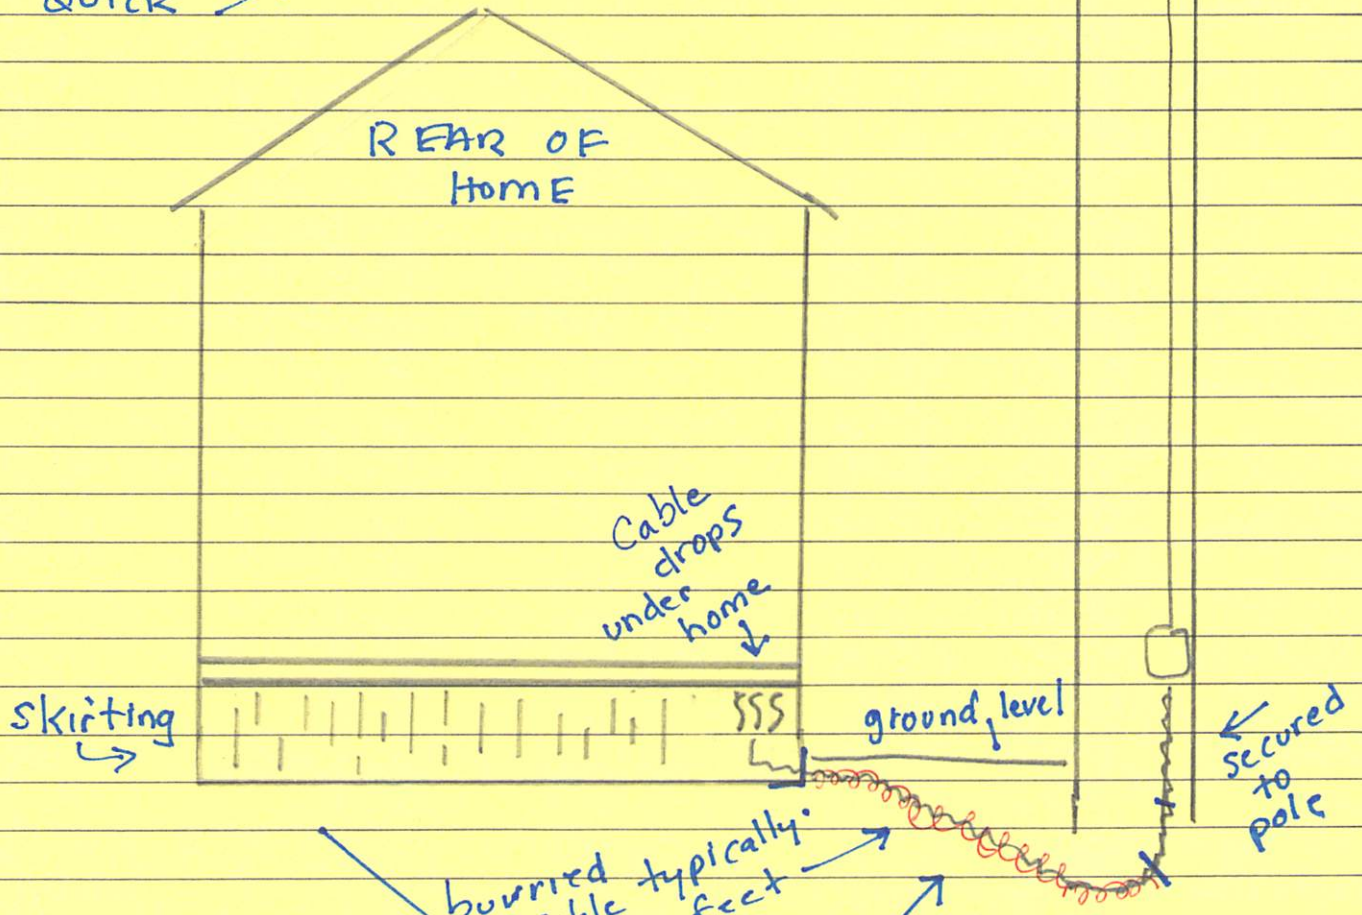 QUICK
REAR OF
HomE
Cable
drops
under
home
skirting
ground level
secured
to
pole
burried
typically
feet